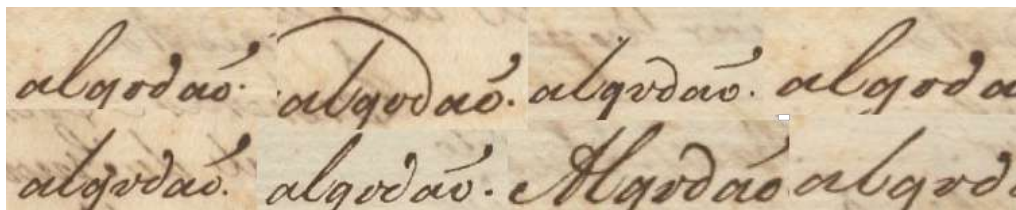 algodaõ. algodaõ. algodaõ. algoda
algodaõ. algodaõ. Algodaõ algod